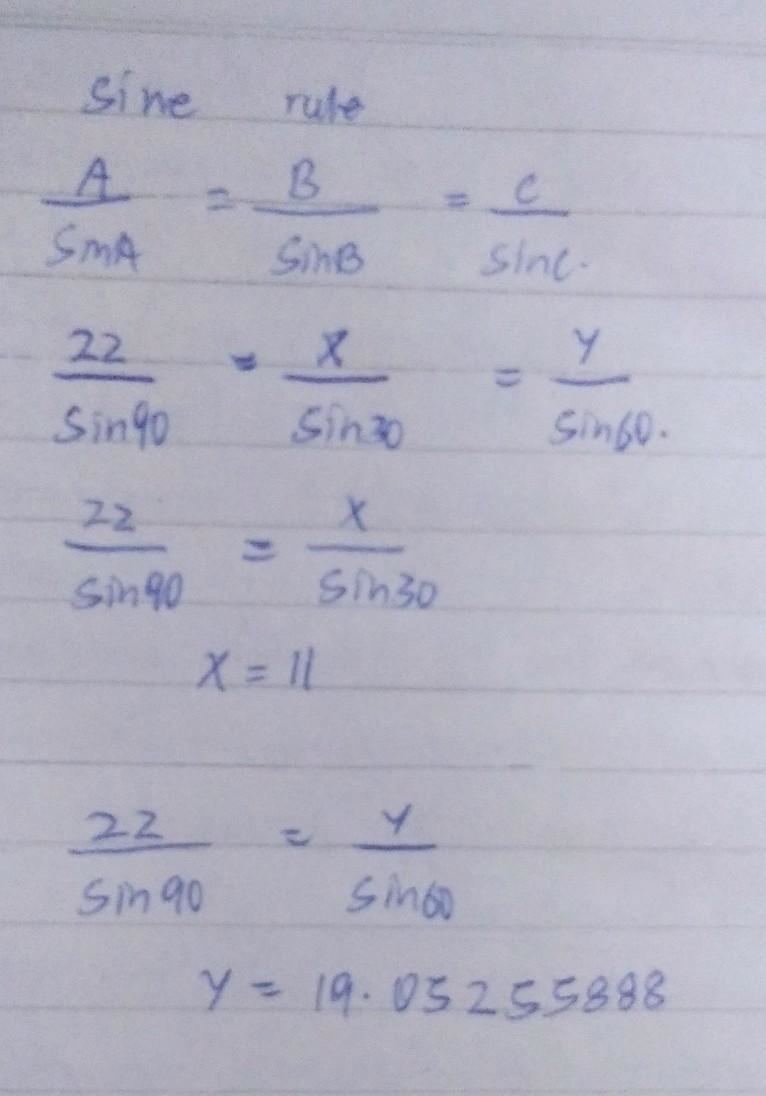 Sine rule
A/SinA = B/SinB = C/SinC.
22/Sin90 = X/Sin30 = Y/Sin60.
22/Sin90 = X/Sin30
X = 11
22/Sin90 = Y/Sin60
Y = 19.05255888